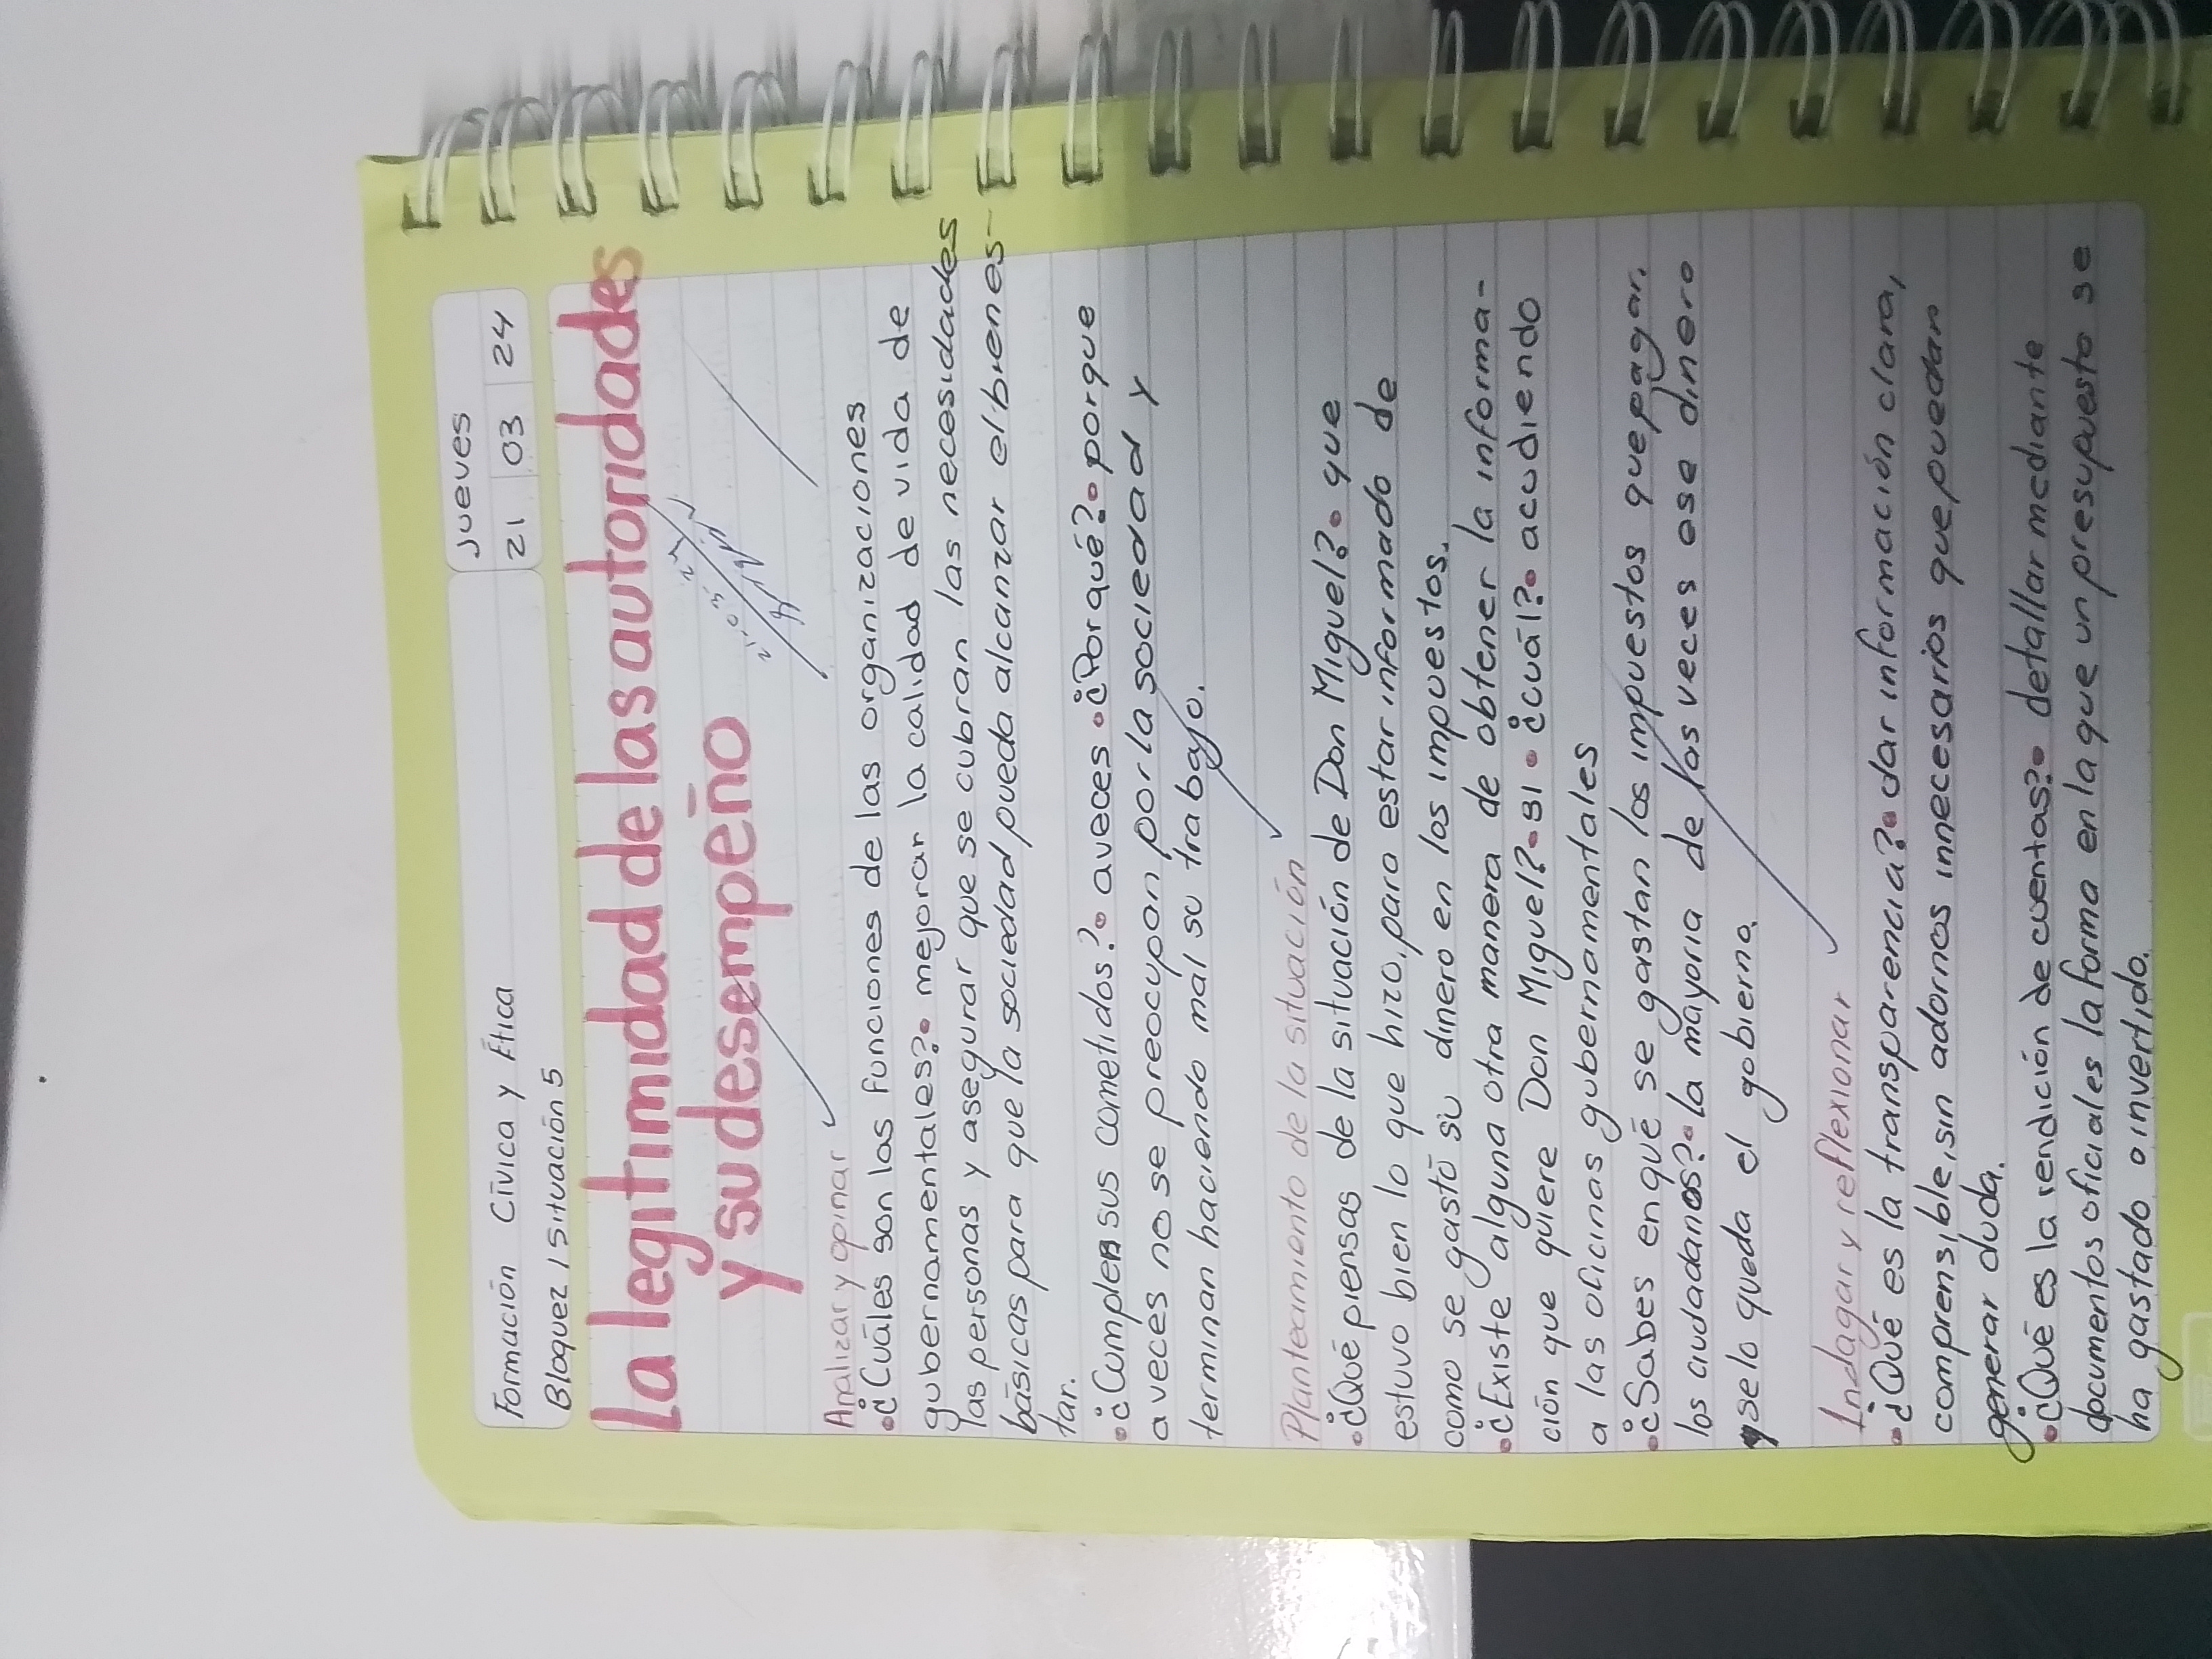 Formación Cívica y Ética
Jueves
21 03 24
Bloque 2 | Situación 5
La legitimidad de las autoridades
y su desempeño
21-03-24
Analizar y opinar
•¿Cuáles son las funciones de las organizaciones
gubernamentales?• mejorar la calidad de vida de
las personas y asegurar que se cubran las necesidades
básicas para que la sociedad pueda alcanzar el bienes-
tar.
•¿Cumplen sus cometidos?• aveces •¿Por qué?• porque
aveces no se preocupan por la sociedad y
terminan haciendo mal su trabajo.
Planteamiento de la situación
•¿Qué piensas de la situación de Don Miguel?• que
estuvo bien lo que hizo, para estar informado de
como se gastó su dinero en los impuestos.
•¿Existe alguna otra manera de obtener la informa-
ción que quiere Don Miguel?• si • ¿cuál?• acudiendo
a las oficinas gubernamentales
•¿Sabes en qué se gastan los impuestos que pagan
los ciudadanos?• la mayoria de las veces ese dinero
y selo queda el gobierno.
Indagar y reflexionar
•¿Qué es la transparencia?• dar información clara,
comprensible, sin adornos innecesarios que puedan
generar duda.
•¿Qué es la rendición de cuentas?• detallar mediante
documentos oficiales la forma en la que un presupuesto se
ha gastado o invertido.